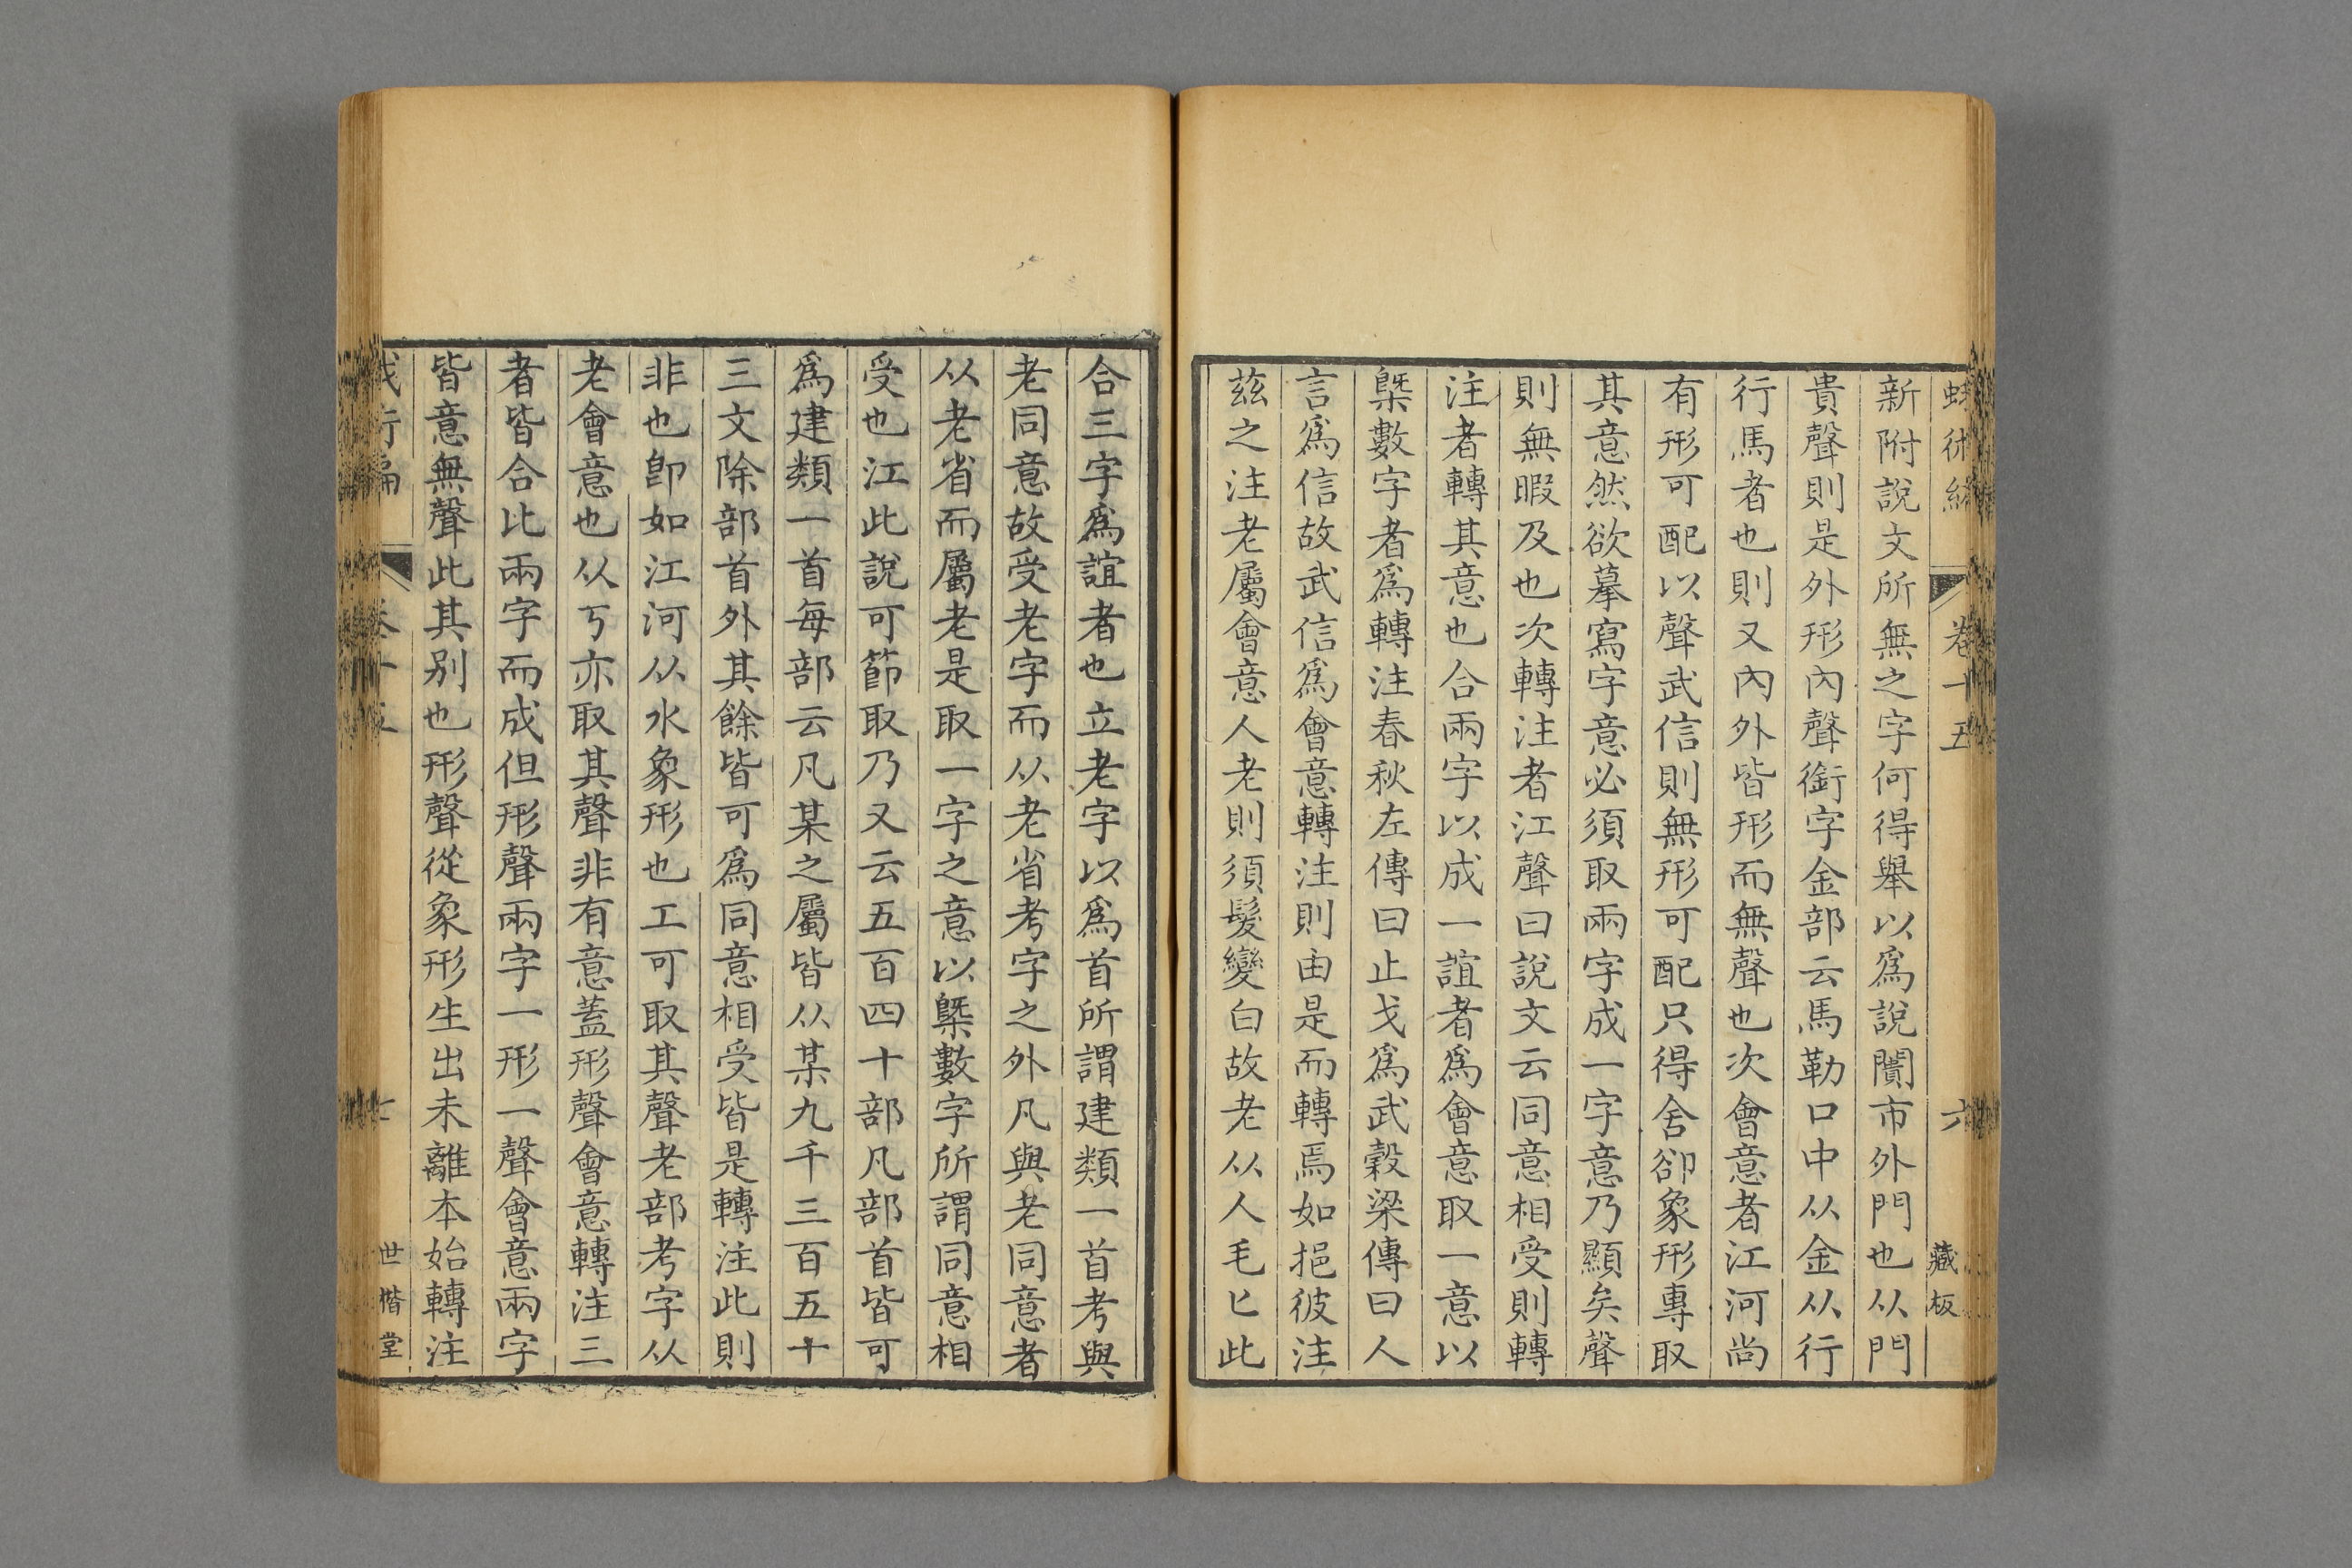 卷十五
六
藏板
新附說文所無之字何得舉以爲說闠市外門也从門
貴聲則是外形內聲銜字金部云馬勒口中从金从行
行馬者也則又內外皆形而無聲也次會意者江河尚
有形可配以聲武信則無形可配只得舍卻象形專取
其意然欲摹寫字意必須取兩字成一字意乃顯矣聲
則無暇及也次轉注者江聲曰說文云同意相受則轉
注者轉其意也合兩字以成一誼者爲會意取一意以
槩數字者爲轉注春秋左傳曰止戈爲武穀梁傳曰人
言爲信故武信爲會意轉注則由是而轉焉如挹彼注
茲之注老屬會意人老則須髮變白故老从人毛匕此
合三字爲誼者也立老字以爲首所謂建類一首考與
老同意故受老字而从老省考字之外凡與老同意者
从老省而屬老是取一字之意以槩數字所謂同意相
受也江此說可節取乃又云五百四十部凡部首皆可
爲建類一首每部云凡某之屬皆从某九千三百五十
三文除部首外其餘皆可爲同意相受皆是轉注此則
非也卽如江河从水象形也工可取其聲老部考字从
老會意也从丂亦取其聲非有意蓋形聲會意轉注三
者皆合比兩字而成但形聲兩字一形一聲會意兩字
皆意無聲此其別也形聲從象形生出未離本始轉注
世楷堂